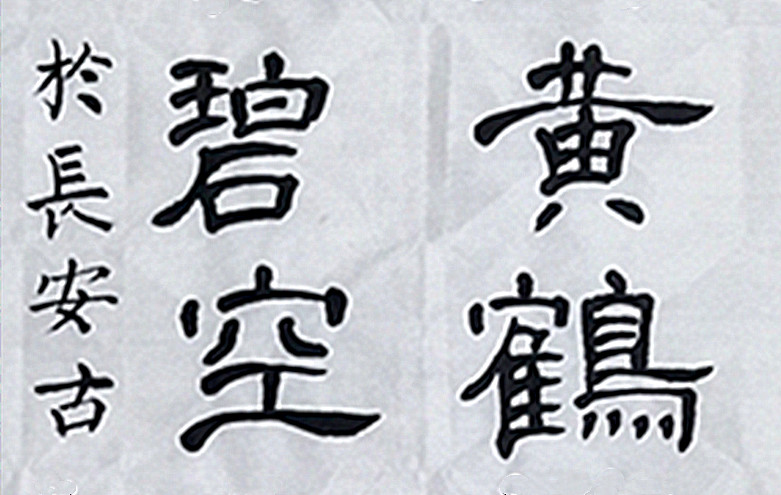 黄鶴
碧空
於長安古